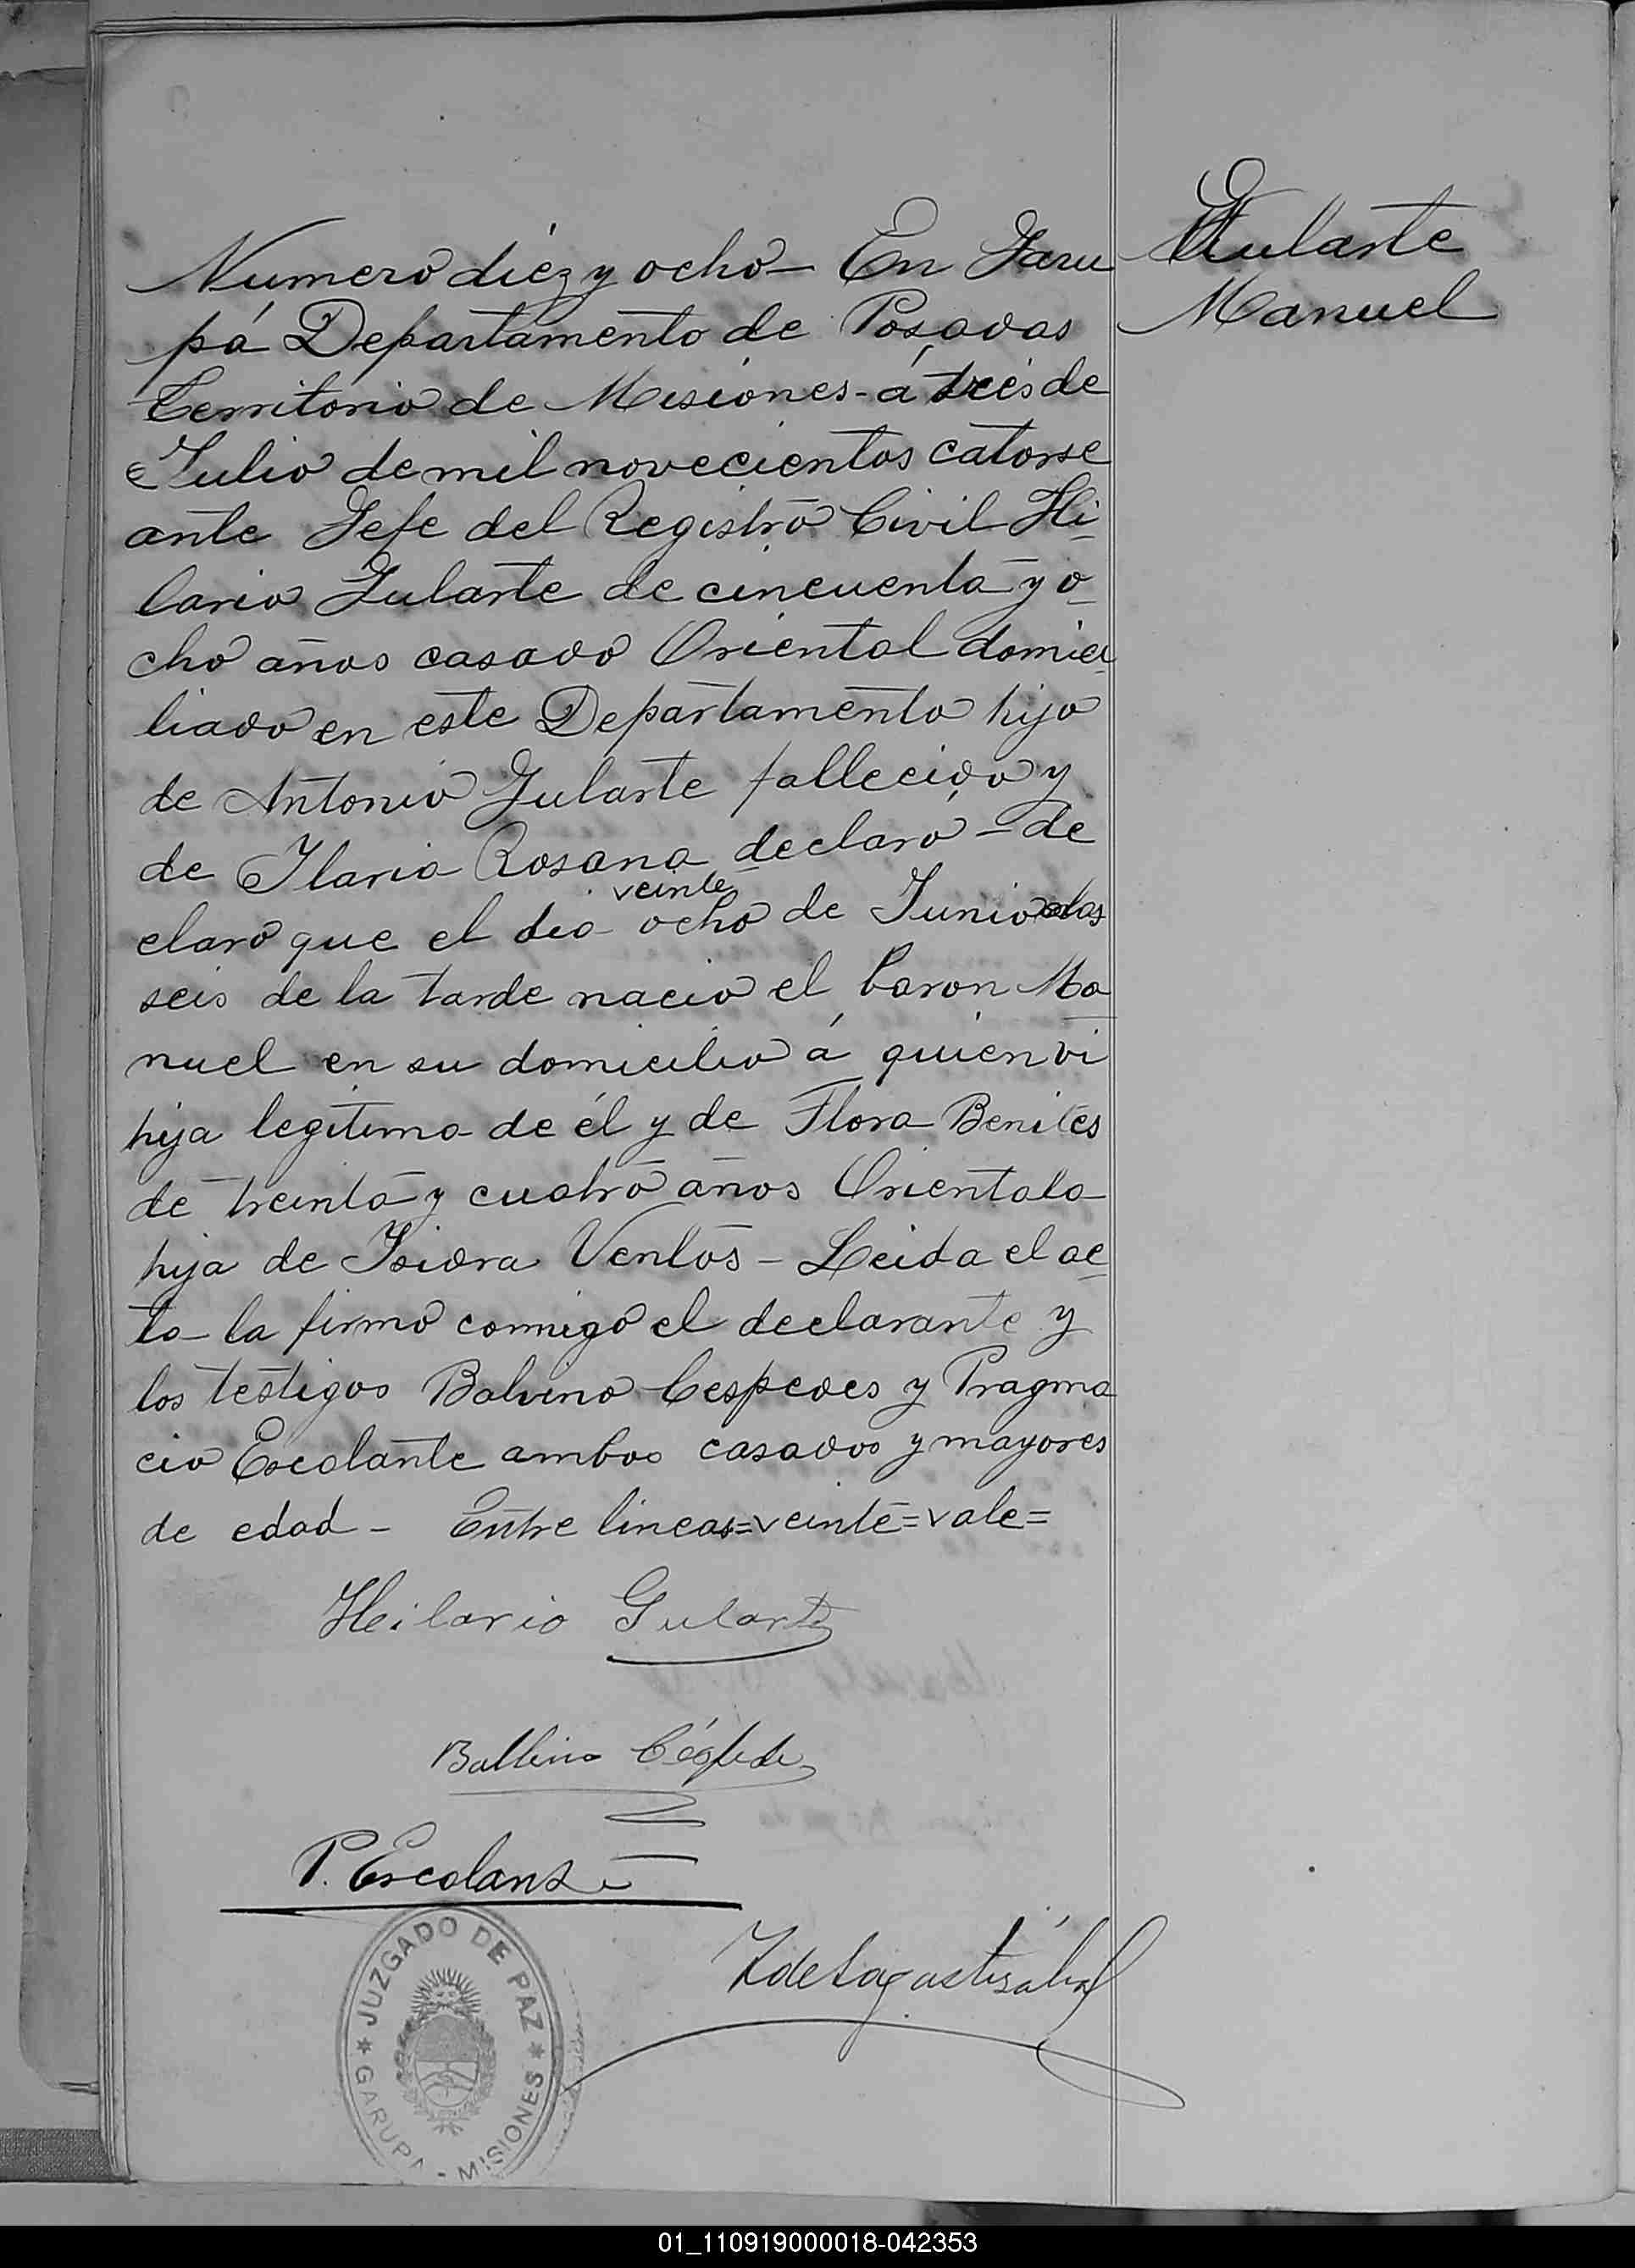 Gularte
Manuel
Numero diez y ocho - En Garu
pá Departamento de Posadas
Territorio de Misiones - á tres de
Julio de mil novecientos catorse
ante Jefe del Registro Civil Hi-
lario Gularte de cincuenta y o-
cho años casado Oriental domici-
liado en este Departamento hijo
de Antonio Gularte fallecido y
de Ilaria Rosana declaró - de
claró que el dia veinte ocho de Junio a las
seis de la tarde nació el baron Ma
nuel en su domicilio á quien vi
hija legitima de él y de Flora Benites
de treinta y cuatro años Orientala
hija de Isidra Ventos - Leida el ac-
ta la firmó conmigo el declarante y
los testigos Balvino Cespedes y Pragma
cio Escalante ambos casados y mayores
de edad - Entre lineas = veinte = vale =
Hilario Gularte
Balbino Céspede
P. Escalante
JUZGADO DE PAZ
GARUPA - MISIONES
01_110919000018-042353